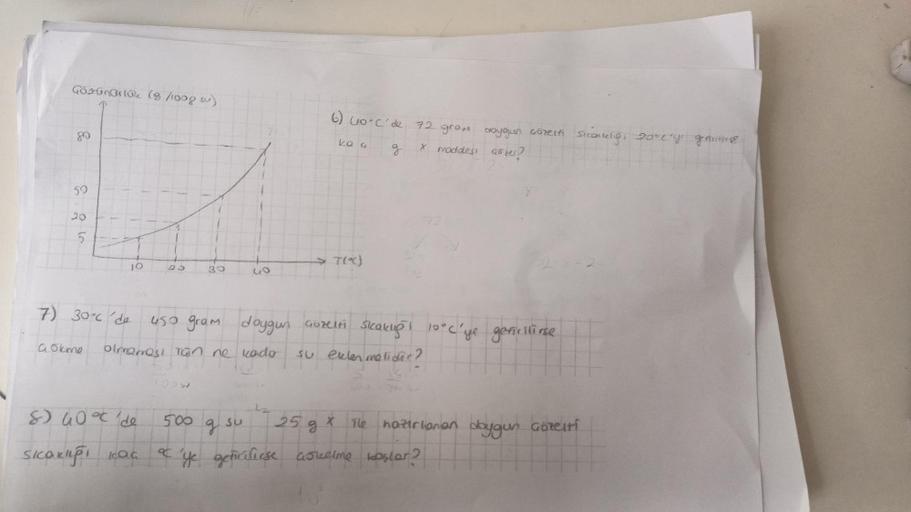 Çözünürlük (g/100g su)
80
50
20
5
10 20 30 40 T(°C)
6) 40°C'de 72 gram doygun çözelti sıcaklığı 20°C'ye getirilirse
kaç g x maddesi çöker?
7) 30°C'de 450 gram doygun çözelti sıcaklığı 10°C'ye getirilirse
çökme olmaması için ne kadar su eklenmelidir?
8) 40°C'de 500 g su 25 g x ile hazırlanan doygun çözelti
sıcaklığı kaç °C'ye getirilirse çökelme başlar?